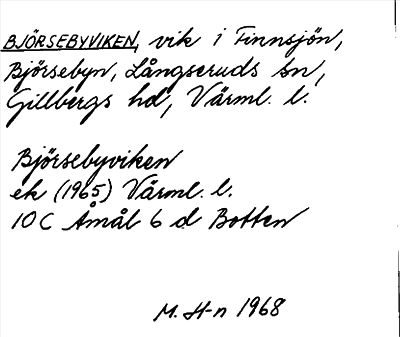 BJÖRSEBYVIKEN, vik i Finnsjön,
Björsebyn, Långseruds sn,
Gillbergs hd, Värml. l.
Björsebyviken
ek (1965) Värml. l.
10 C Åmål 6 d Botten
M. H-n 1968